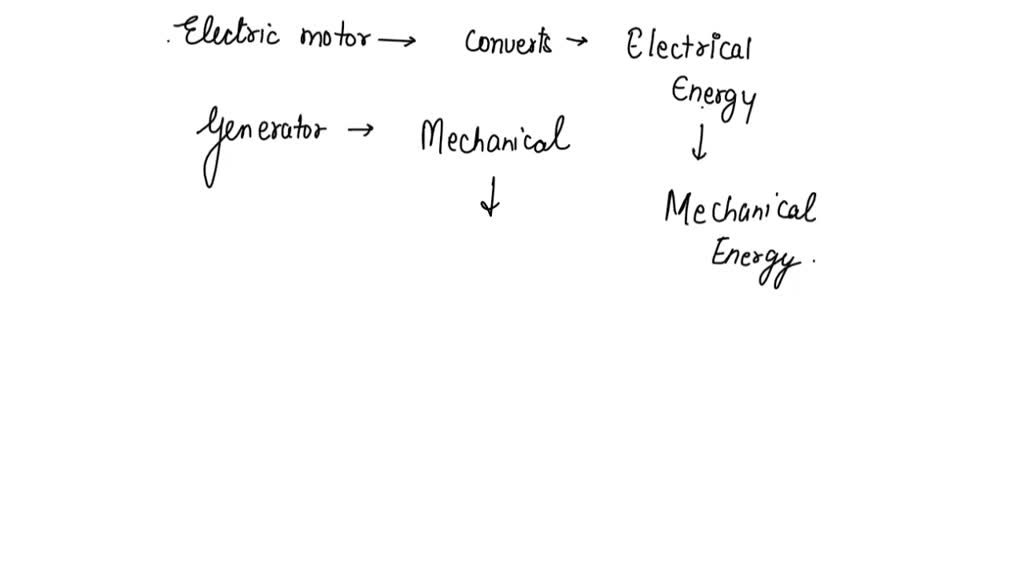 . Electric motor → Converts → Electrical
Energy
↓
Generator → Mechanical
↓
Mechanical
Energy .